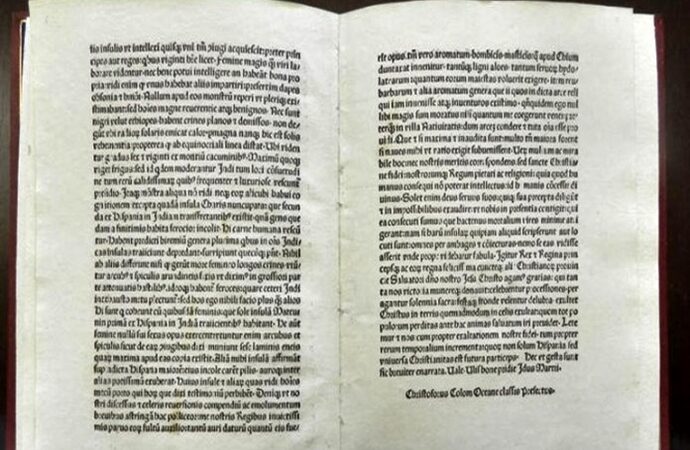 tis insulis vt intellexi quisq; vni tm̄ ziugi acquiescit: preter prin
cipes aut reges: qbus viginti hr̄e licet. Femine magis q̈ viri la
borare videntur nec bene potui intelligere an habeāt bona pro
pria: vidi enim qd vnus habebat aliis impartiri presertim dapes
obsonia et hmōi. Nullum apud eos monstrū reperi vt pleriq; existi
mabant: sed hoīes magne reuerentie atq; benignos. Nec sunt
nigri velut ethiopes. habent crines planos et demissos. non de
gūt vbi radioꝝ solaris emicat calor. pmagna namq; hic est solis
vehementia: propterea q̄ ab equinoctiali linea distat. Vbi viden
tur gradus sex et viginti ex montiū cacuminibus. Maximū quoq;
viget frigus: sed id qdem moderantur Indi tum loci cōsuetudi
ne tum rerū calidissimaꝝ quibus frequenter et luxuriose vescunt
presidio. Itaq; mōstra aliqua nō vidi neq; eoꝝ alicubi habui co
gnitionem excepta quadā insula Charis nuncupata: que secun
da ex Hispania in Indiam transfretantibus existit. quā gens que
dam a finitimis habita ferocior incolit. Hi carne humana vescū
tur. Habent predicti biremiū genera plurima qbus in oēs Indi
cas insulas traiiciunt depredant surripiunt quecūq; pn̄t. Nihil
ab aliis differunt nisi q̄ gerūt more femineo longos crines: vtū
tur arcubus et spiculis arundineis fixis vt diximus in grossiori par
te attenuatis hastilibus. ideoq; habent feroces: quare ceteri Indi
inexhausto metu plectunt. sed hos ego nihil facio plus q̄ alios
Hi sunt q coheunt cū quibusdā feminis: que sole insulā Mateu
nin prima ex Hispania in Indiā traiicientibus habitant. He aūt
femine nullū sui sexus opus exercent: vtuntur enim arcubus et
spiculis sicut de eaꝝ ziugibus dixi. muniunt sese laminis eneis
quaꝝ maxima apud eas copia existit. Aliā mihi insulā affirmāt
supradicta Hispana maiorem: eius incole carēt pilis. auroq; inter
alias potissimū exuberat. Huius insule et aliaꝝ quas vidi hoīes
mecū porto qui hoꝝ que dixi testimoniū perhibēt. Deniq; vt no
stri discessus et celeris reuersionis compendiū ac emolumentum
breuibus astringā hoc polliceor: me nostris Regibus inuictissi
mis paruo eoꝝ fultū auxilio: tantū auri daturū quantū eis fue-
rit opus. tm̄ vero aromatum. bombicis. masticis: q apud Chium
duntaxat inuenitur. tantūq; ligni aloes. tantum seruoꝝ hydo
latrarum: quantum eorum maiestas voluerit exigere. item reu
barbarum et alia aromatum genera que ii quos in dicta arce reli
qui iam inuenisse atq; inuenturos existimo. qn̄quidem ego nul
libi magis sum moratus nisi quantum me coegerunt venti: pre
terq̄ in villa Natiuitatis: dum arcem condere et tuta oīa esse pro
uidi. Que et si maxima et inaudita sunt: multo tn̄ maiora forent
si naues mihi vt ratio exigit subuenissent. Verū multum ac mira
bile hoc: nec nostris meritis correspondens: sed sancte Christia
ne fidei: nostrorumq; Regum pietati ac religioni: quia quod hu
manus consequi nō poterat intellectus: id humanis cōcessit di
uinus. Solet enim deus seruos suos: quiq; sua precepta diligūt
et in impossibilibus exaudire: vt nobis in presentia contigit: qui
ea consecuti sumus: que hactenus mortalium vires minime atti
gerant: nam si harū insulaꝝ quipiam aliquid scripserunt aut lo
cuti sunt: omnes per ambages et ziecturas: nemo se eas vidisse
asserit. vnde prope videbatur fabula. Igitur Rex et Regina prin
cepsq; ac eoꝝ regna felicissima cuncteq; alie Christianoꝝ prouin
cie Saluatori dn̄o nostro Iesu Christo agamus gratias: qui tan
ta nos victoria munereq; donauit: celebrentur processiones. per
agantur solennia sacra: festaq; fronde velentur delubra. exultet
Christus in terris quemadmodum in celis exultat: quom tot po
pulorum perditas ante hac animas saluatum iri preuidet. Lete
mur et nos: cum propter exaltationem nostre fidei. tum propter
rerum temporalium incrementa: quoꝝ non solum Hispania sed
vniuersa Christianitas est futura particeps. Hec vt gesta sunt
sic breuiter enarrata. Vale. Vlisbone pridie Idus Martii.
Christoforus Colom Oceane classis Prefectus.